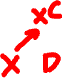 xC
X D